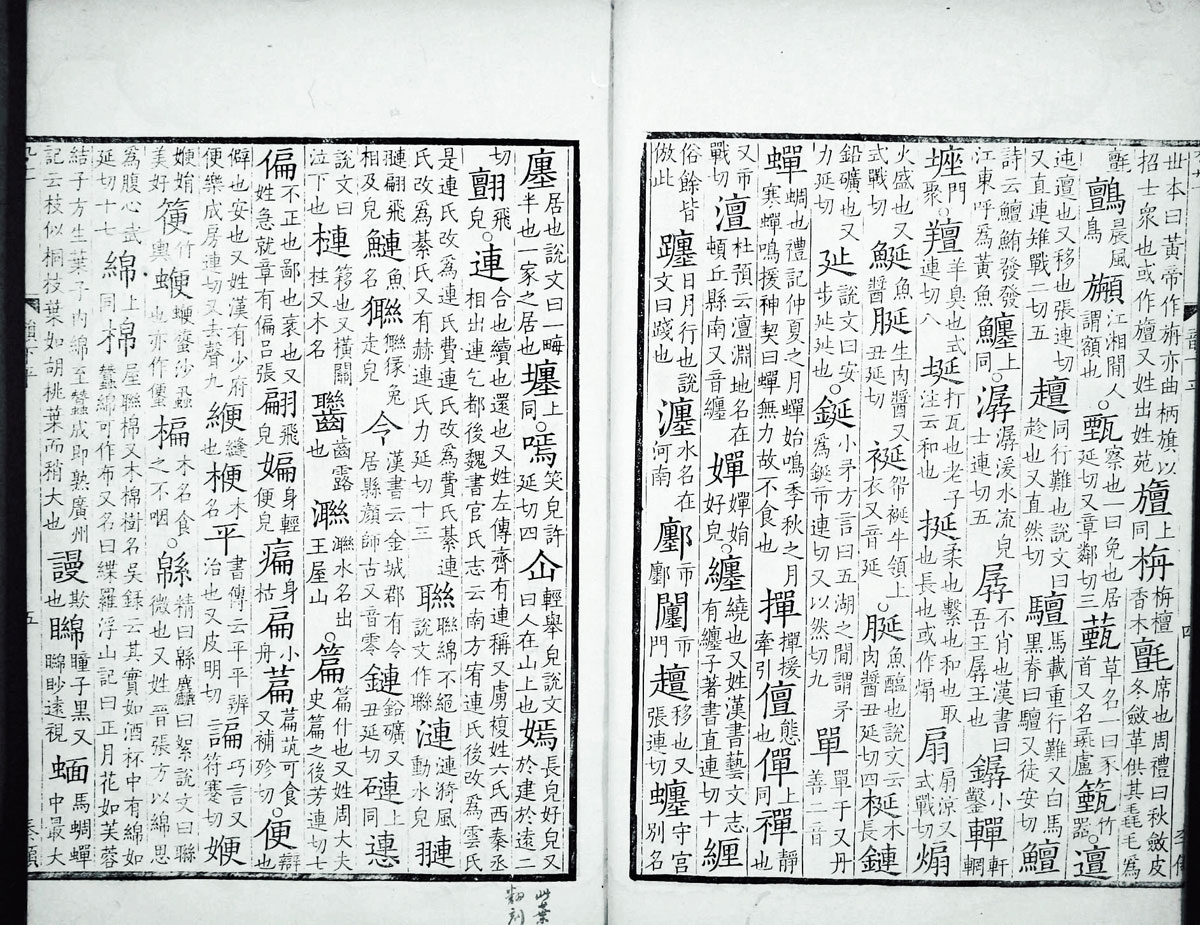 世本曰黃帝作旃亦曲柄旗以招士衆也或作旜又姓出姓苑 旜上同 栴栴檀香木 氈席也周禮曰秋斂皮冬斂革供其毳毛爲
氈 鸇晨風鳥 江湘間人謂額也 ○甄察也一曰免也居延切又章鄰切三 薽草名一曰豕首又名彘盧 籈竹器 ○邅
迍邅也又移也張連切又直連雉戰二切五 䟢同行難也說文曰趁也又直然切 驙馬載重行難又白馬黑脊曰驙又徒安切 鱣
詩云鱣鮪發發江東呼爲黃魚 上同 ○潺潺湲水流皃士連切五 孱不肖也漢書曰吾王孱王也 小鑿 轏軒輞
門聚 ○羶羊臭也式連切八 埏打瓦也老子注云和也 挻柔也繫也和也取也長也或作煽 扇扇涼又式戰切 煽
火盛也又式戰切 鯅魚醬 脠生肉醬又丑延切 䘰帒䘰牛領上衣又音延 ○脠魚醢也說文云肉醬丑延切四 梴木長 鏈
鉛礦也又力延切 㢟說文曰安步㢟㢟也 ○鋋小矛方言曰五湖之閒謂矛爲鋋市連切又以然切九 單單于又丹善二音
蟬蜩也禮記仲夏之月蟬始鳴季秋之月寒蟬鳴援神契曰蟬無力故不食也 撣撣援牽引 儃態也 僤上同 禪靜也
又市戰切 澶杜預云澶淵地名在頓丘縣南又音纏 嬋嬋娟好皃 ○纏繞也又姓漢書藝文志有纏子著書直連切十 緾
俗餘皆倣此 躔日月行也說文曰踐也 瀍水名在河南 鄽市鄽 市門 移也又張連切 守宮別名
廛居也說文曰一畮半也一家之居也 壥上同 ○嘕笑皃許延切四 仚輕舉皃說文曰人在山上也 嫣長皃好皃又於建於遠二
切 翾飛皃 ○連合也續也還也又姓左傳齊有連稱又虜複姓六氏西秦丞相出連乞都後魏書官氏志云南方宥連氏後改爲雲氏
是連氏改爲連氏費連氏改爲費氏綦連氏改爲綦氏又有赫連氏力延切十三 聯聯綿不絕說文作聯 漣漣漪風動水皃 翴
翴翩飛相及皃 鰱魚名 兔走皃 令漢書云金城郡有令居縣顏師古又音零 鏈鉛礦又丑延切 上同 㦁
說文曰泣下也 槤簃也又橫關柱又木名 齒露也 水名出王屋山 ○篇篇什也又姓周大夫史篇之後芳連切七
偏不正也鄙也衺也又姓急就章有偏呂張 翩飛皃 媥身輕便皃 㾫身枯 扁小舟 萹萹茿可食又補殄切 ○便辯也
僻也安也又姓漢有少府便樂成房連切又去聲九 緶縫也 楩木名 平書傳云平平辨治也又皮明切 諞巧言又符蹇切 㛹
㛹娟美好 箯竹輿 沙蝨也亦作 楄木名食之不咽 ○緜精曰緜麤曰絮說文曰聯微也又姓晉張方以綿思
爲腹心武延切十七 綿上同 棉屋聯棉又木棉樹名吳錄云其實如酒杯中有綿如蠶綿可作布又名曰緤羅浮山記曰正月花如芙蓉
結子方生葉子內綿至蠶成即熟廣州記云枝似桐枝葉如胡桃葉而稍大也 謾欺也 矊瞳子黑又矊眇遠視 蝒馬蜩蟬中最大
此葉
翻刻